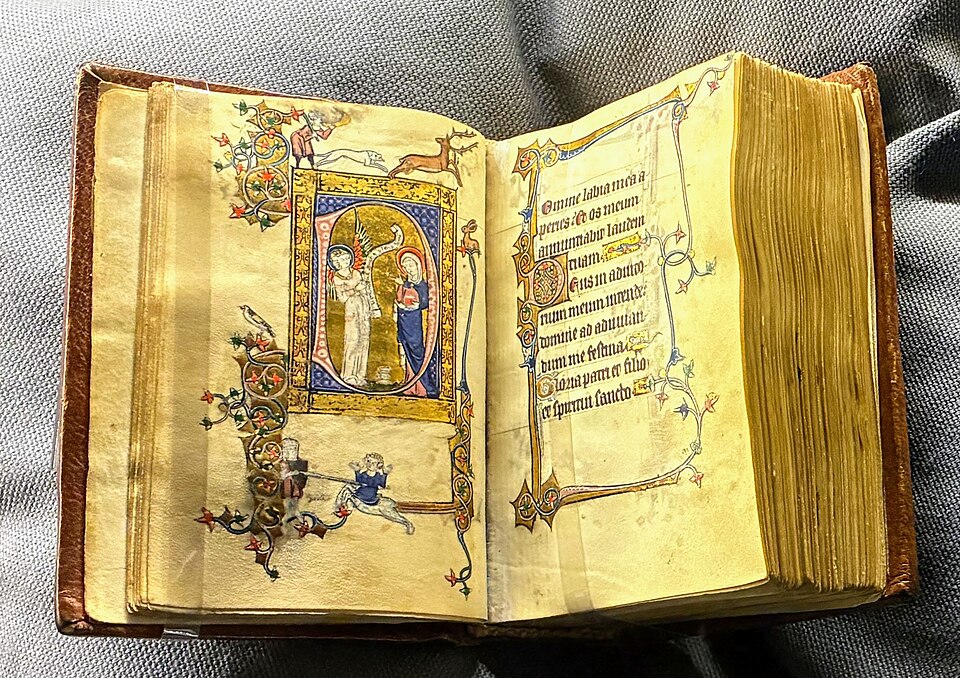 Omine labia mea a
peries. Et os meum
annuntiabit laudem
tuam.
Deus in adiuto
rium meum intende:
domine ad adiuuan
dum me festina.
Gloria patri et filio
et spiritui sancto